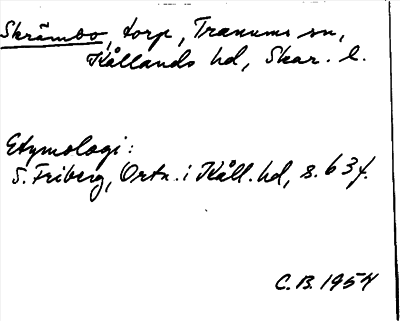 Skråmbo, torp, Tranums sn,
Kållands hd, Skar. l.
Etymologi:
S. Friberg, Ortn. i Kåll. hd, s. 63 f.
C.B. 1954